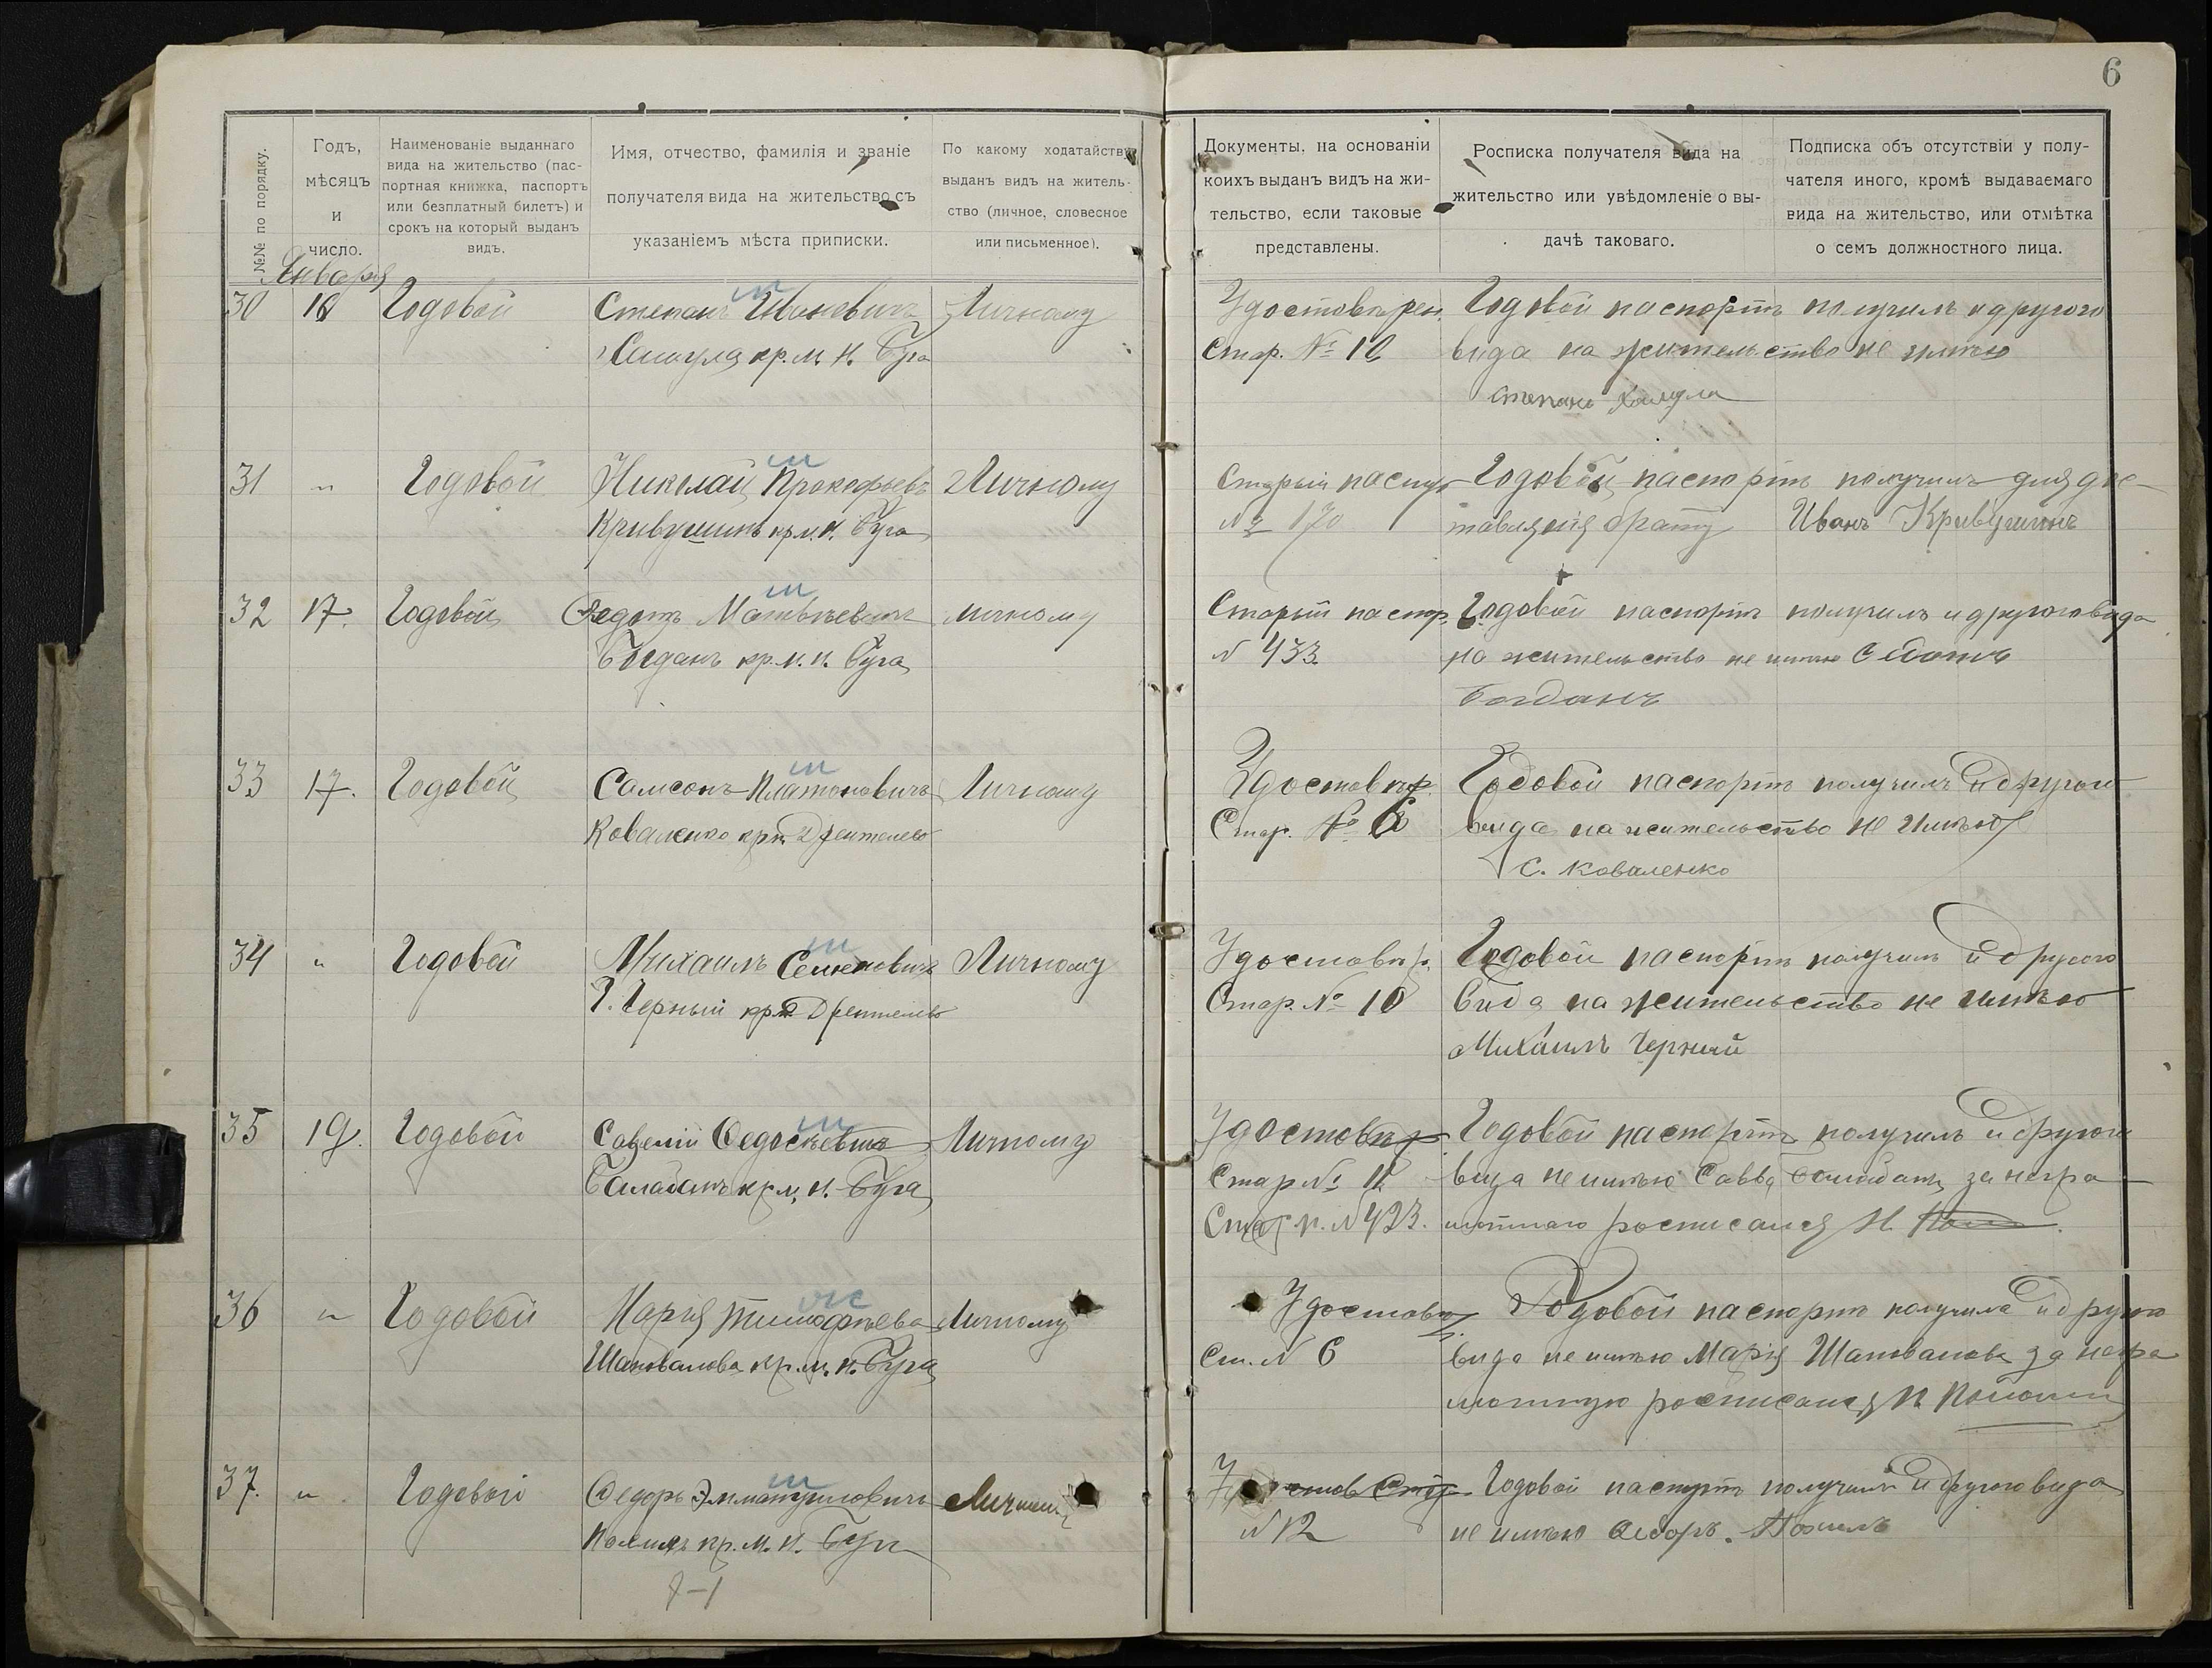 6
№№ по порядку.
Годъ,
мѣсяцъ
и
число.
Наименованіе выданнаго
вида на жительство (пас-
портная книжка, паспортъ
или безплатный билетъ) и
срокъ на который выданъ
видъ.
Имя, отчество, фамилія и званіе
получателя вида на жительство съ
указаніемъ мѣста приписки.
По какому ходатайству
выданъ видъ на житель-
ство (личное, словесное
или письменное).
Документы, на основаніи
коихъ выданъ видъ на жи-
тельство, если таковые
представлены.
Росписка получателя вида на
жительство или увѣдомленіе о вы-
дачѣ таковаго.
Подписка объ отсутствіи у полу-
чателя иного, кромѣ выдаваемаго
вида на жительство, или отмѣтка
о семъ должностного лица.
Января
30 Годовой Степанъ Ивановичъ Личному Удостовѣрен. Годовой паспортъ получилъ и другого
кр. м. Н. Буга Стар. № вида на жительство не имѣю
Степанъ
31 " Годовой Николай Прокофьевъ Личному Старый Годовой паспортъ получилъ для дос-
Кривушинъ кр. м. Н. Буга № 170 тавленія брату Иванъ Кривушинъ
32 17. Годовой Федотъ Матвѣевичъ личному Старый паспор. Годовой паспортъ получилъ и другого вида
Богданъ кр. м. Н. Буга № 433 на жительство не имѣю Федотъ
Богданъ
33 17. Годовой Самсонъ Платоновичъ Личному Удостовѣр. Годовой паспортъ получилъ и другого
Коваленко кр. Стар. № вида на жительство не имѣю
С. Коваленко
34 " Годовой Михаилъ Семеновичъ Личному Удостовѣр. Годовой паспортъ получилъ и другого
Черный кр. Стар. № 10 вида на жительство не имѣю
Михаилъ Черный
35 19. Годовой Савелій Федосѣевичъ Личному Удостовѣр. Годовой паспортъ получилъ и другого
Балабанъ кр. м. Н. Буга Стар № вида не имѣю Савва Балабанъ, за негра-
№ 423. мотнаго росписался Н.
36 " Годовой Марія Тимофѣева Личному Удостовѣр. Годовой паспортъ получила и друго
Шаповалова кр. м. Н. Буга Ст. № 6 вида не имѣю Марія Шаповалова за негра
мотную росписался
37. " Годовой Федоръ Эммануиловичъ Личному Годовой паспортъ получилъ и другого вида
кр. м. Н. Буга № 12 не имѣю Федоръ